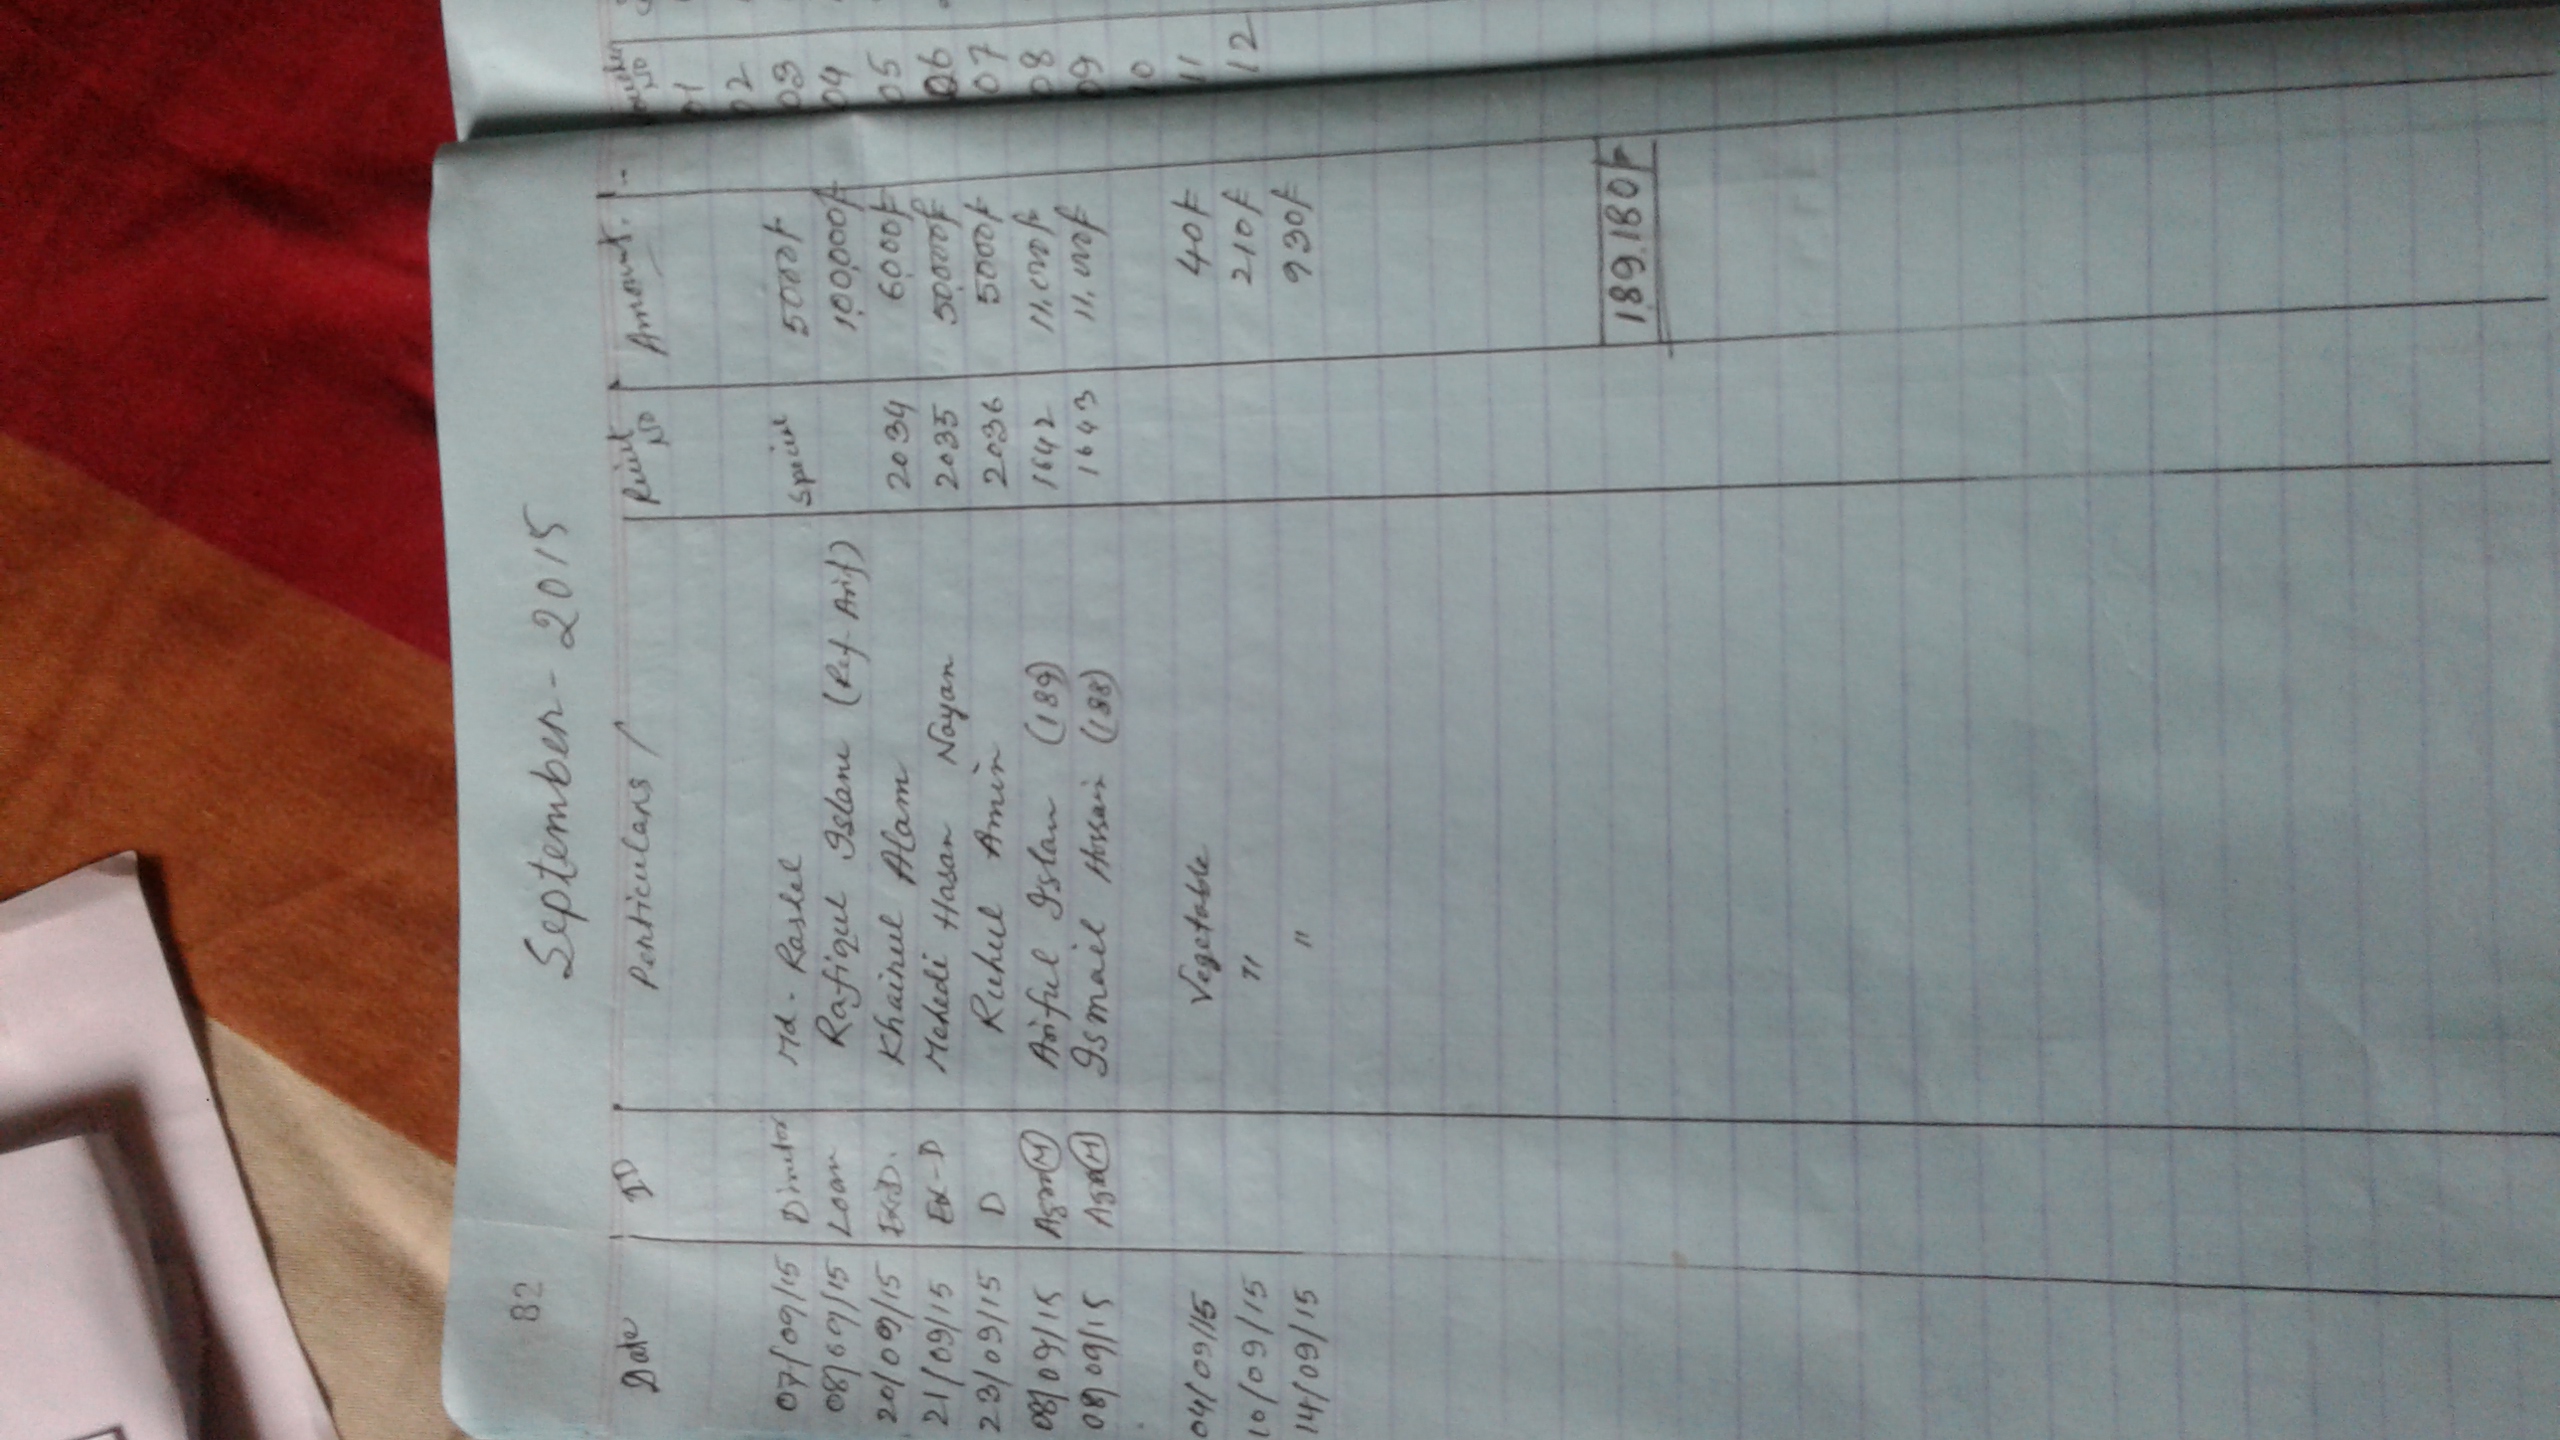 82
September - 2015
Date ID Penticulars / Reciet No Amount.
07/09/15 Director Md. Rashel Special 5000/-
08/09/15 Loan Rafiqul Islam (Ref- Arif) 1,00,000/-
20/09/15 Ex-D. Khairul Alam 2034 6000/-
21/09/15 Ex-D Mehedi Hasan Nayan 2035 50,000/-
23/09/15 D Ruhul Amin 2036 5000/-
08/09/15 Agro (M) Ariful Islam (189) 1642 11,000/-
08/09/15 Agro (M) Ismail Hossain (188) 1643 11,000/-
04/09/15 Vegetable 40/-
10/09/15 " 210/-
14/09/15 " 930/-
189,180/-
oucher No
01
02
03
04
05
06
07
08
09
10
11
12